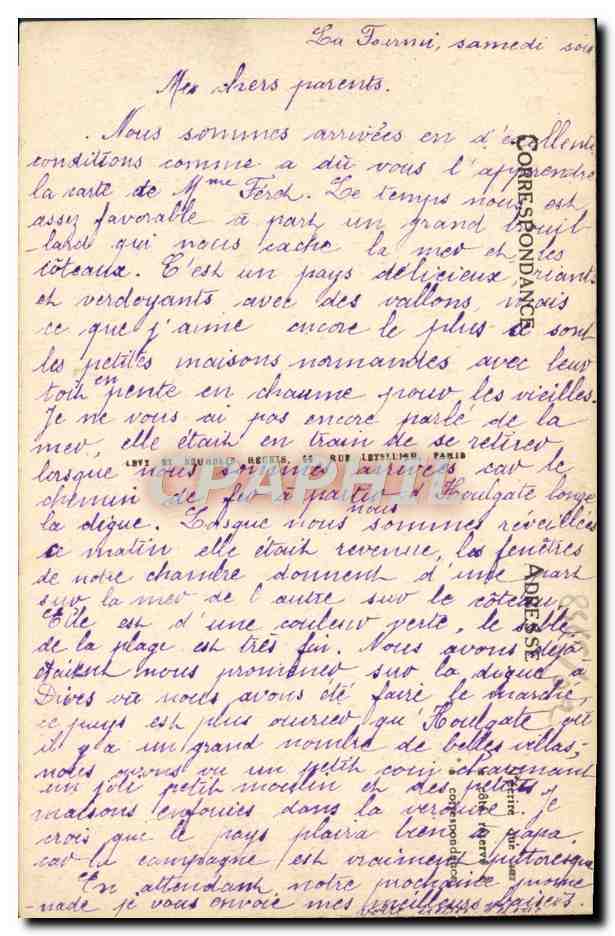 La Fourmi, samedi soir
Mes chers parents.
Nous sommes arrivées en d'excellentes
conditions comme a dû vous l'apprendre
la carte de Mme Ferch. Le temps nous est
assez favorable à part un grand brouil-
lard qui nous cache la mer et les
côteaux. C'est un pays délicieux, riants
et verdoyants avec des vallons, mais
ce que j'aime encore le plus ce sont
les petites maisons normandes avec leur
toit en pente en chaume pour les vieilles.
Je ne vous ai pas encore parlé de la
mer, elle était en train de se retirer
lorsque nous sommes arrivées car le
chemin de fer à partir d'Houlgate longe
la digue. Lorsque nous nous sommes réveillées
ce matin elle était revenue, les fenêtres
de notre chambre donnent d'une part
sur la mer de l'autre sur le côteau.
Elle est d'une couleur verte, le sable
de la plage est très fin. Nous avons déjà
étaient nous promener sur la digue à
Dives où nous avons été faire le marché,
ce pays est plus ouvrier qu'Houlgate où
il y a un grand nombre de belles villas,
nous avons vu un petit coin charmant
un joli petit moulin et des petites
maisons enfouies dans la verdure. Je
crois que le pays plaira bien à papa
car la campagne est vraiment pittoresque
En attendant notre prochaine prome-
-nade je vous envoie mes meilleurs baisers.
CORRESPONDANCE
ADRESSE
N'écrire que sur
le côté réservé à
correspondance
LEVY ET NEURDEIN REUNIS, 44, RUE LETELLIER, PARIS
CPAPHIL